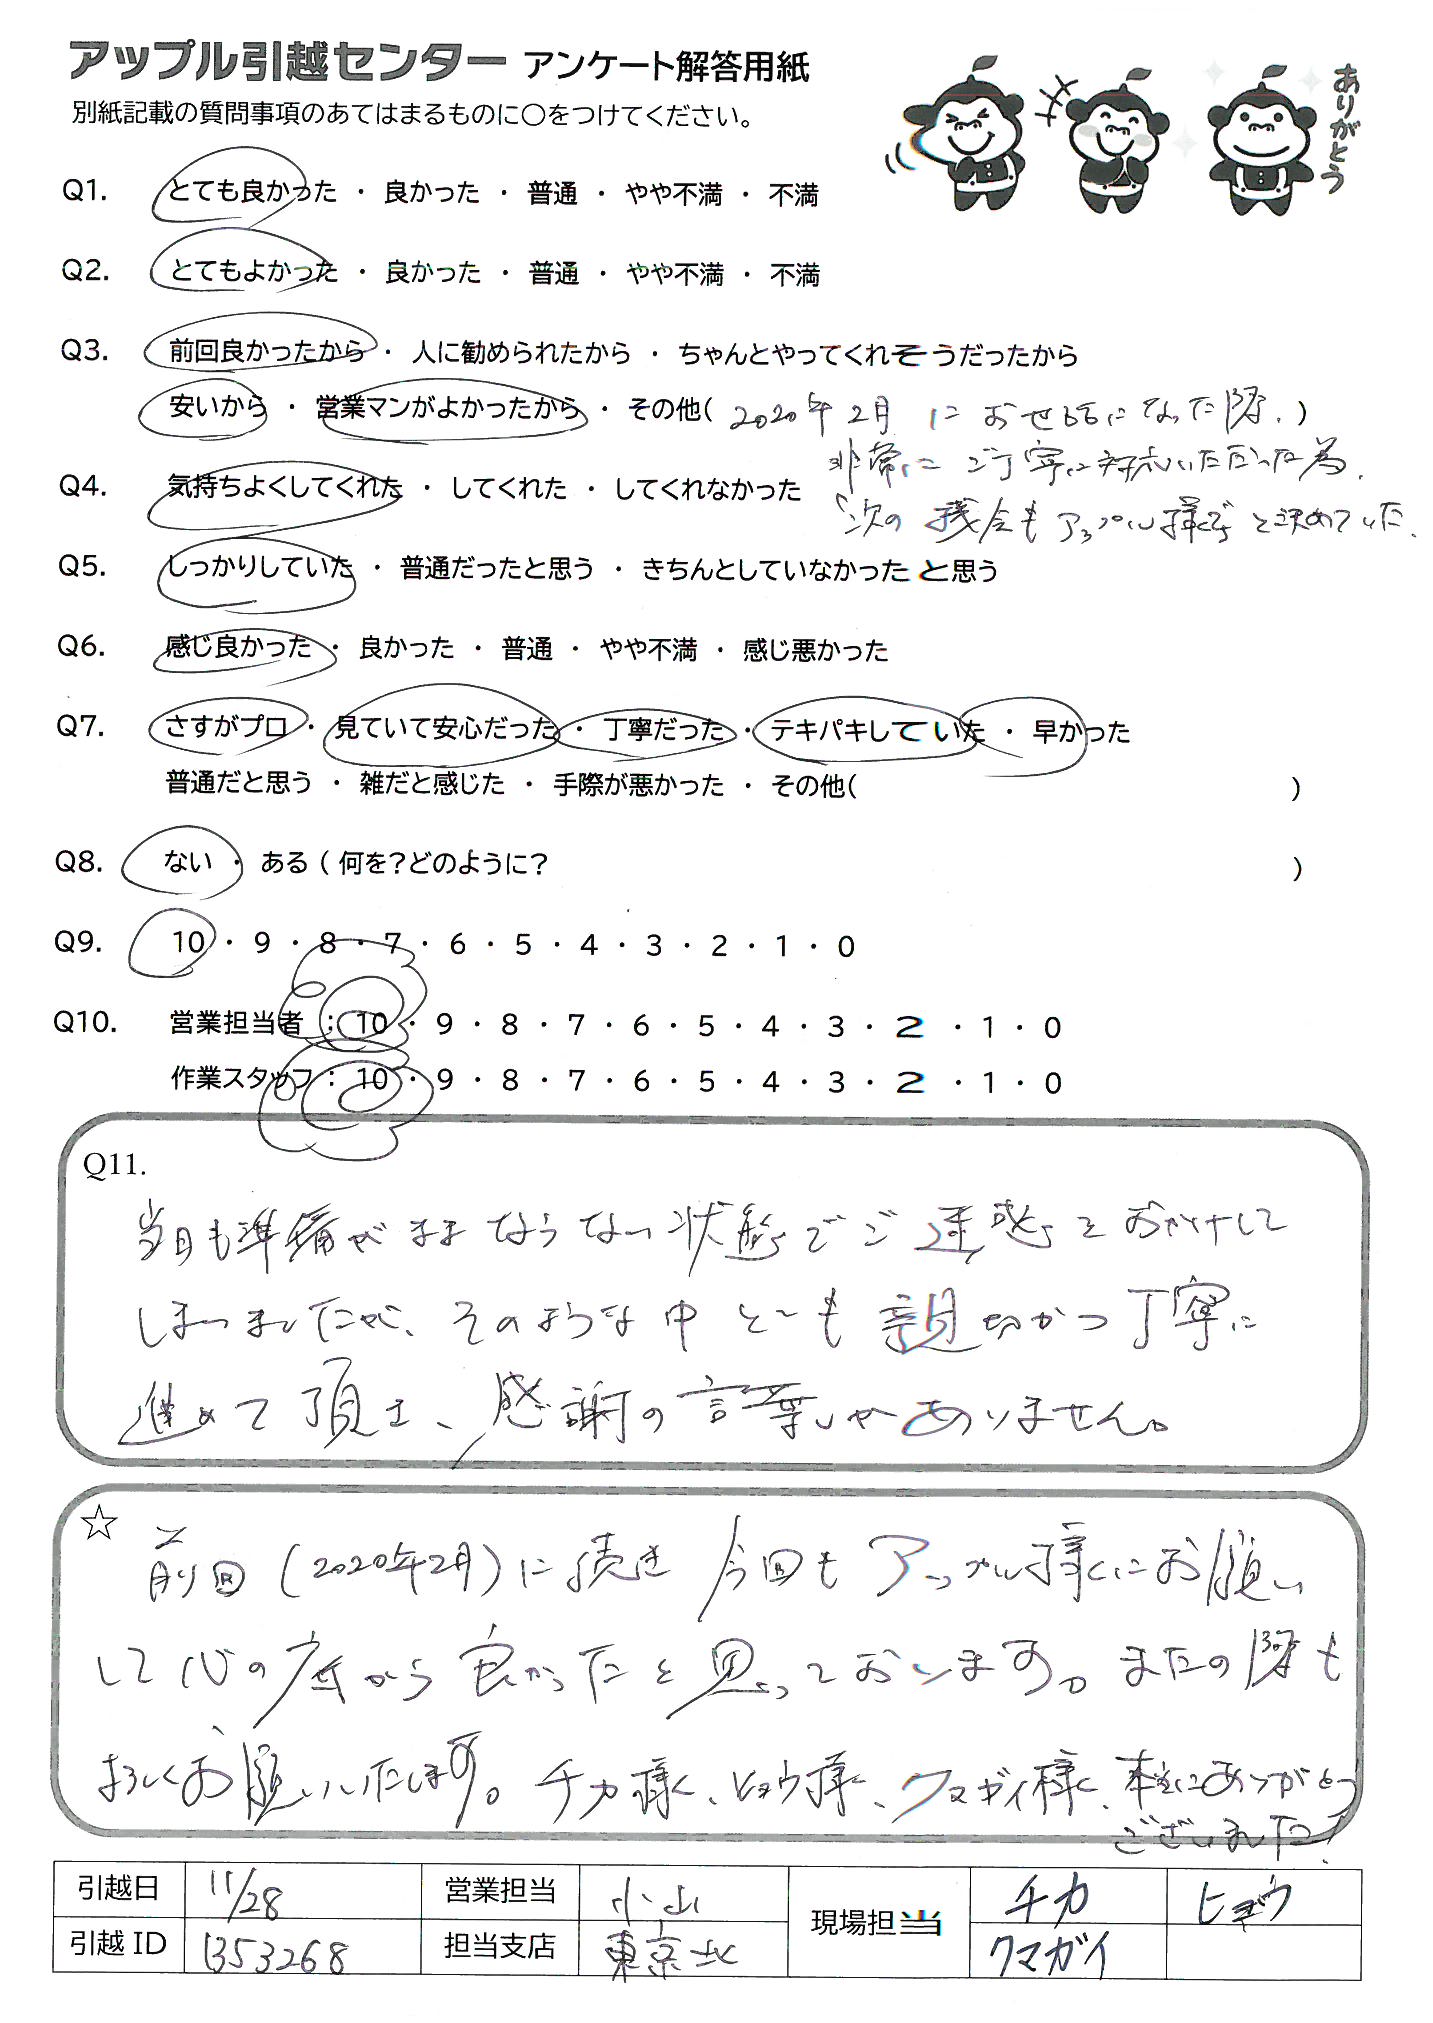 アップル引越センター アンケート解答用紙
別紙記載の質問事項のあてはまるものに○をつけてください。
ありがとう
Q1. とても良かった ・ 良かった ・ 普通 ・ やや不満 ・ 不満
Q2. とてもよかった ・ 良かった ・ 普通 ・ やや不満 ・ 不満
Q3. 前回良かったから ・ 人に勧められたから ・ ちゃんとやってくれそうだったから
安いから ・ 営業マンがよかったから ・ その他( 2020年2月 に お世話になった際、 )
非常に ご丁寧に対応いただいた為、
Q4. 気持ちよくしてくれた ・ してくれた ・ してくれなかった
「次の機会もアップル様で」と決めていた。
Q5. しっかりしていた ・ 普通だったと思う ・ きちんとしていなかったと思う
Q6. 感じ良かった ・ 良かった ・ 普通 ・ やや不満 ・ 感じ悪かった
Q7. さすがプロ ・ 見ていて安心だった ・ 丁寧だった ・ テキパキしていた ・ 早かった
普通だと思う ・ 雑だと感じた ・ 手際が悪かった ・ その他( )
Q8. ない ・ ある ( 何を?どのように? )
Q9. 10 ・ 9 ・ 8 ・ 7 ・ 6 ・ 5 ・ 4 ・ 3 ・ 2 ・ 1 ・ 0
Q10. 営業担当者 : 10 ・ 9 ・ 8 ・ 7 ・ 6 ・ 5 ・ 4 ・ 3 ・ 2 ・ 1 ・ 0
作業スタッフ : 10 ・ 9 ・ 8 ・ 7 ・ 6 ・ 5 ・ 4 ・ 3 ・ 2 ・ 1 ・ 0
Q11.
当日も準備がままならない状態でご迷惑をおかけして
しまいましたが、そのような中とても親切かつ丁寧に
進めて頂き、感謝の言葉しかありません。
☆ 前回(2020年2月)に続き今回もアップル様にお願い
して心の底から良かったと思っております。またの際も
よろしくお願いいたします。チカ様、ヒョウ様、クマガイ様、本当にありがとう
ございました!
引越日 11/28 営業担当 小山 現場担当 チカ ヒョウ
引越ID 1353268 担当支店 東京北 クマガイ